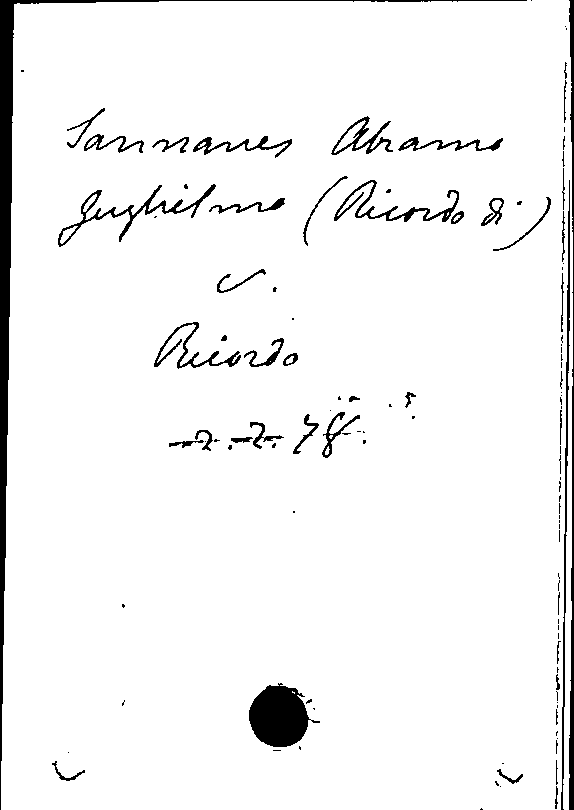 Sannanes Abramo
Guglielmo (Ricordo di)
v.
Ricordo
2.2.78.